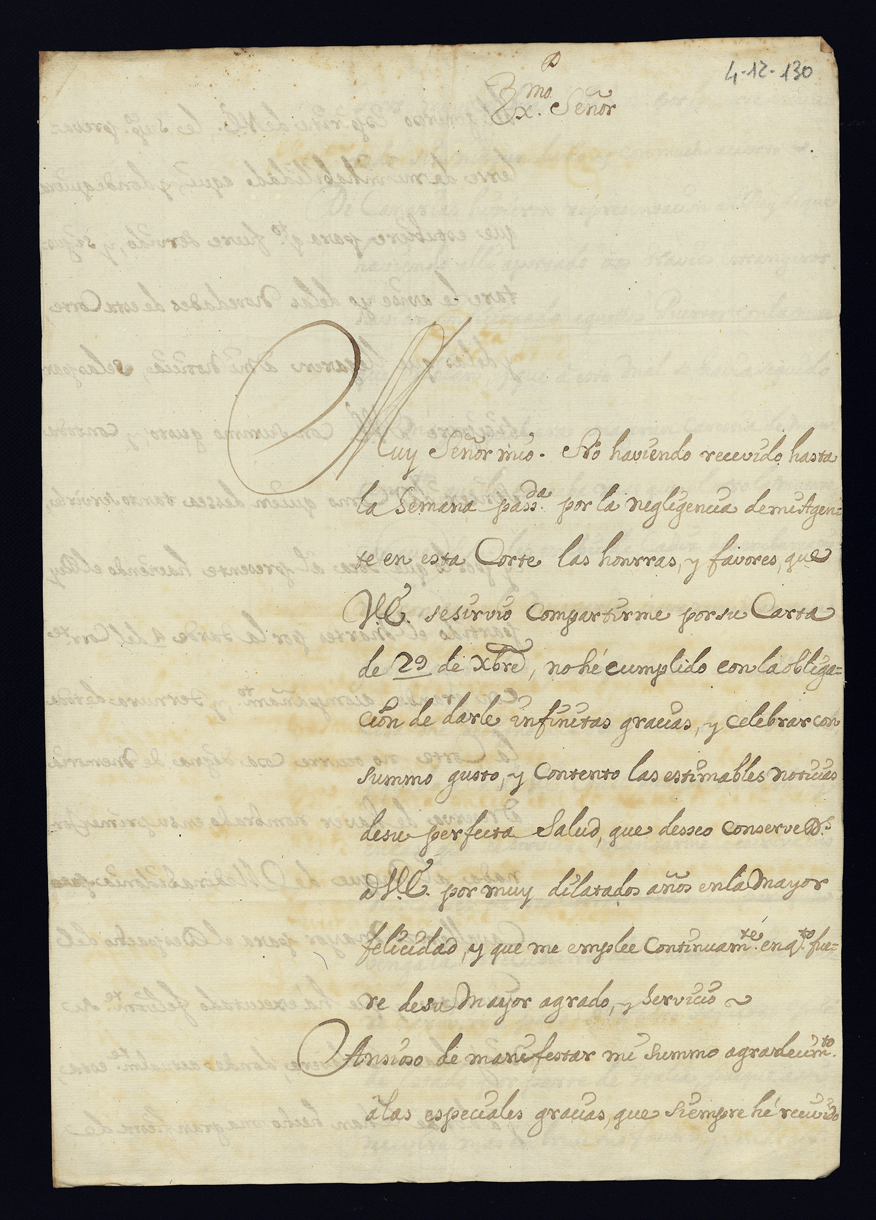 4-12-130
Ex.mo Señor
Muy Señor mio. No haviendo recevido hasta
la Semana pass.da por la negligencia de mi Agen-
te en esta Corte las honrras, y favores, que
V.E. se sirvió compartirme por su Carta
de 29 de Xbre, no hé cumplido con la obliga-
ción de darle infinitas gracias, y celebrar con
summo gusto, y Contento las estimables noticias
de su perfecta Salud, que desseo conserve D.s
a V.E. por muy dilatados años en la Mayor
felicidad, y que me emplee Continuam.te en q.to fue-
re de su Mayor agrado, y servicio
Ansioso de manifestar mi summo agradecim.to
à las especiales gracias, que siempre hé recevido